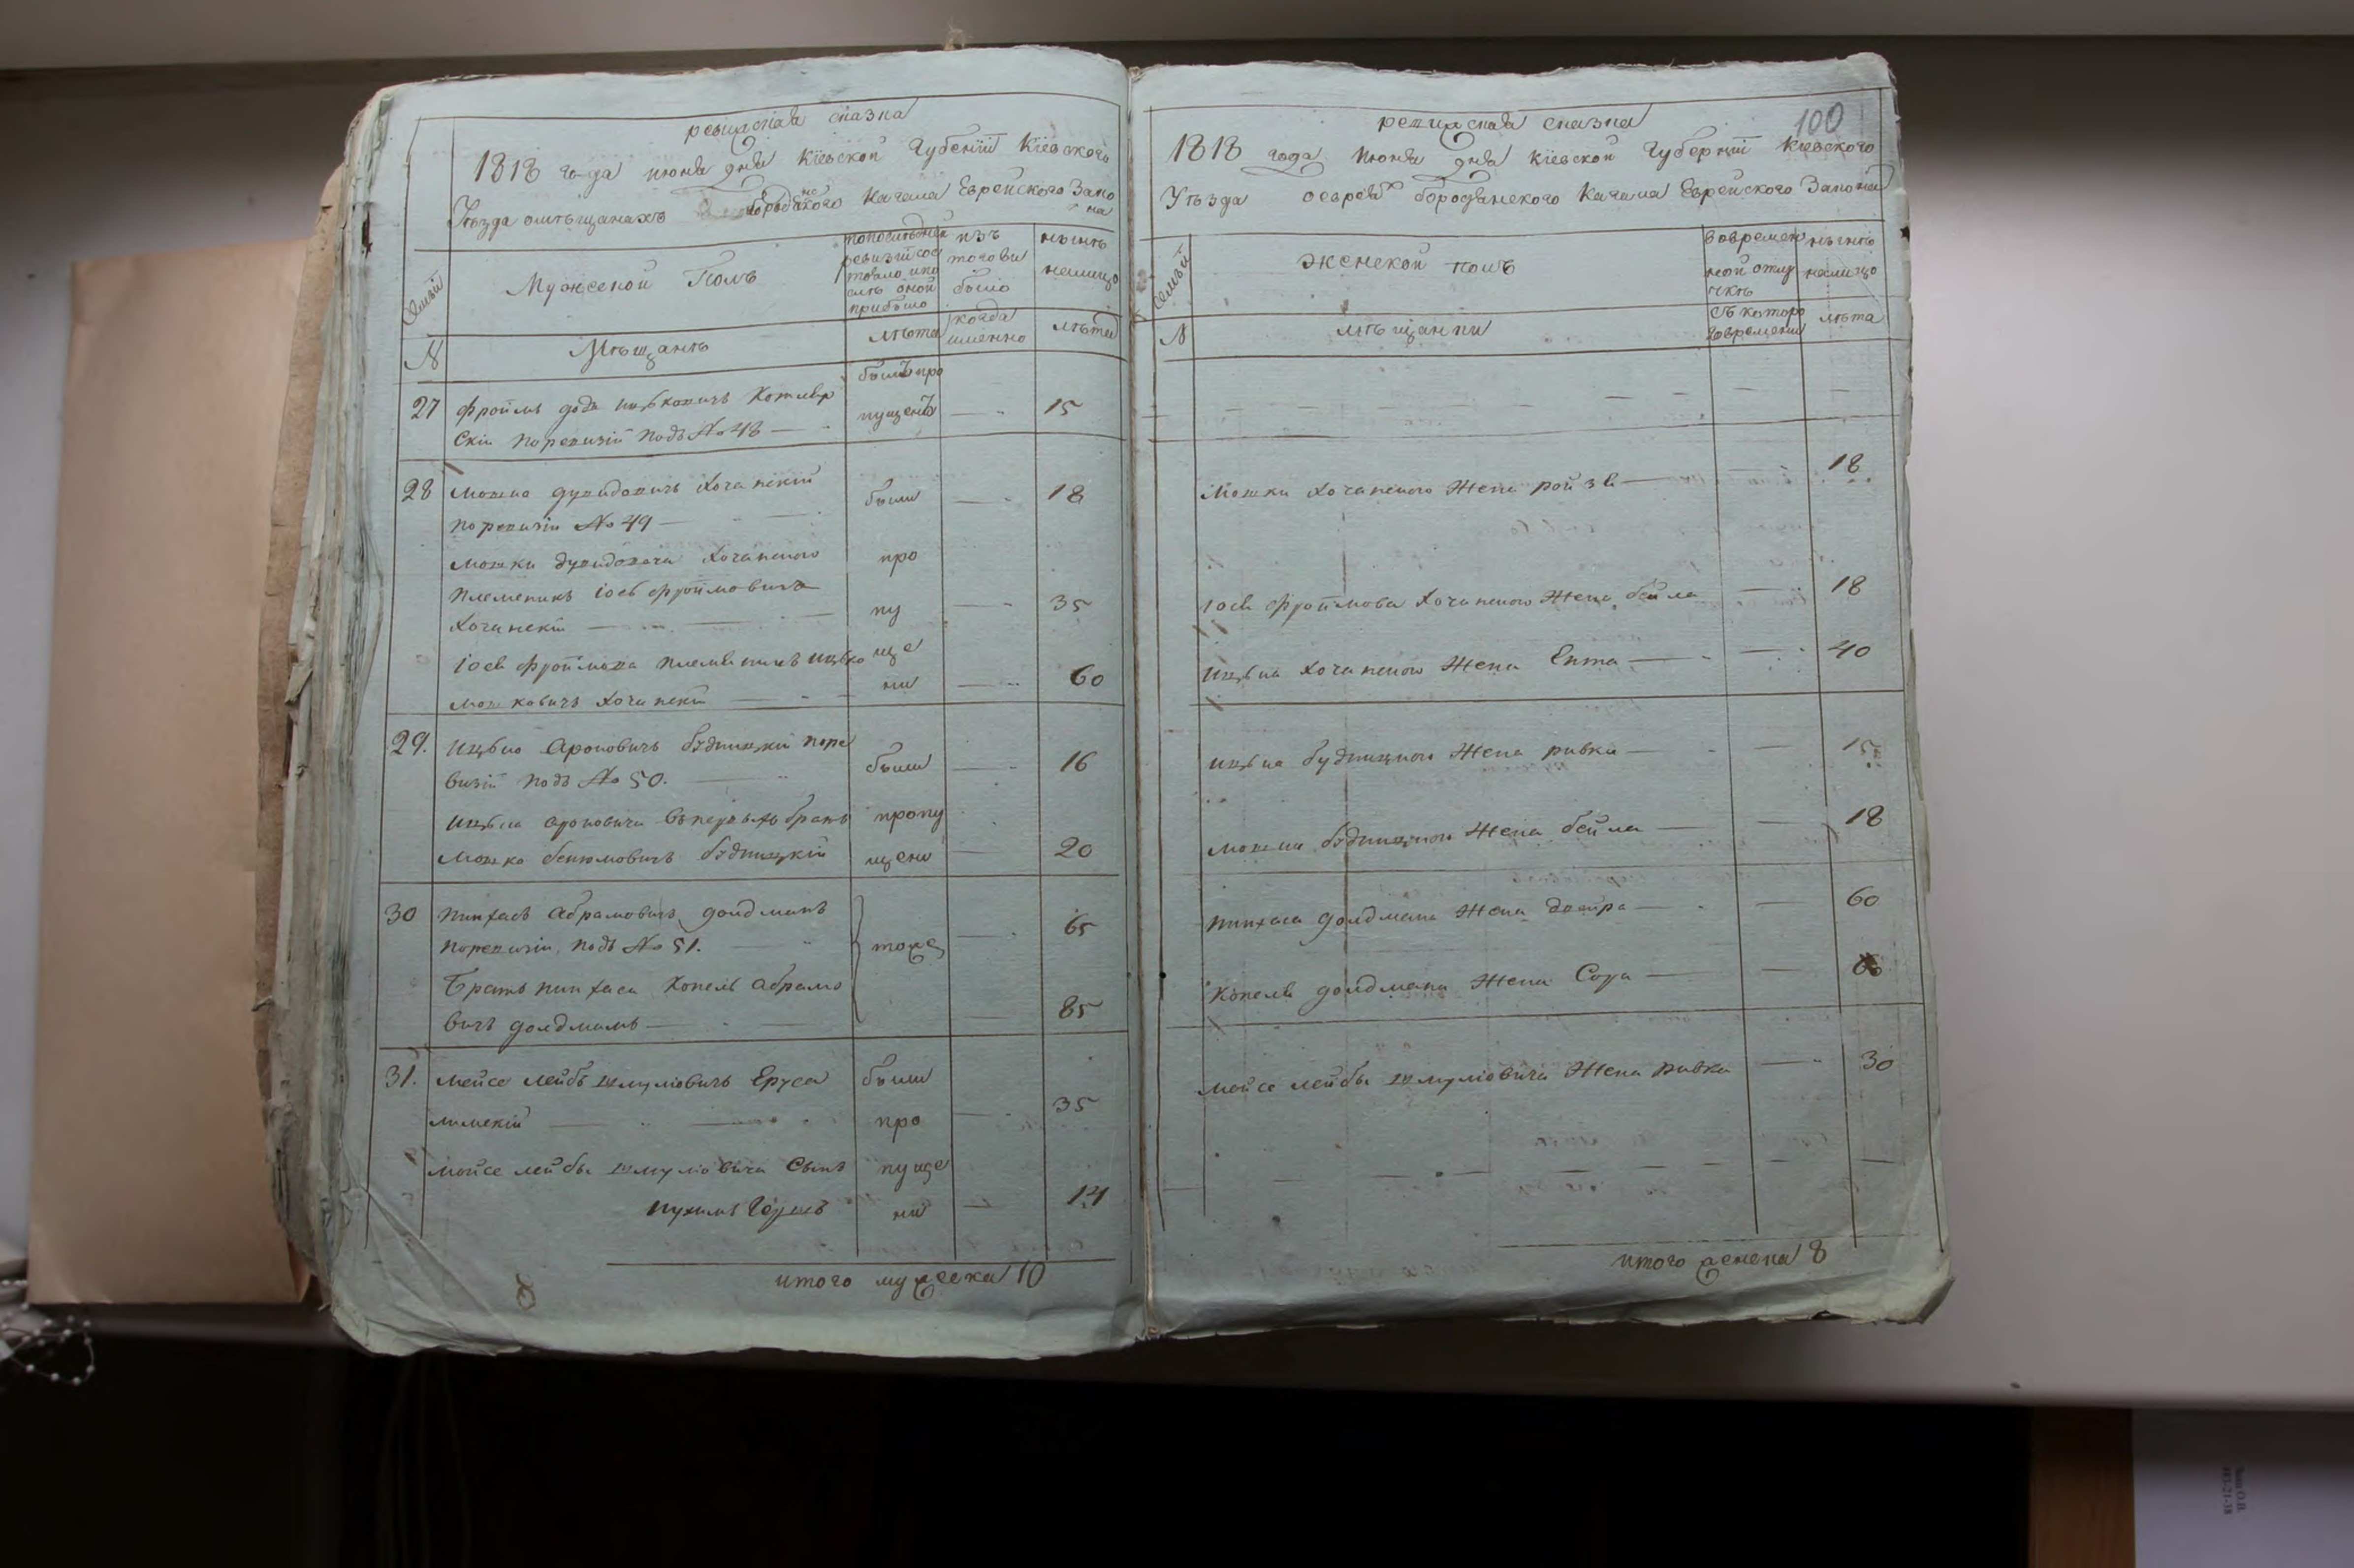 ревижская сказка
1818 года июня дня Кіевской Губеніи Кіевского
Уѣзда омѣщанахъ бородянского Кагала Еврейского Зако
на
Семьи
Мужеской Полъ
попоследней
ревизіи сос
тояло ипо
слѣ оной
прибыло
изъ
того вы
было
нынѣ
налицо
N
Мѣщанѣ
лѣта
когда
именно
лѣта
27 Фроимъ Котляр
скіи поревизіи подъ No 48
былъ про
пущенъ
15
28 Мошко дувидовичъ Хочанскій
поревизіи No 49
были
18
Мошки дувидовича Хочанского
племеникъ Іось Фроймовичъ
Хочанскій
про
пу
35
Іося Фроймова племяникъ Ицько
Мошковичъ Хочанскій
ще
ни
60
29. Ицько Ароновичъ будницкій поре
визіи подъ No 50.
были
16
Ицька Ароновича братъ
Мошко будницкій
пропу
щени
20
30 Пинхасъ Абрамовичъ Голдманъ
поревизіи подъ No 51.
тоже
65
Братъ пинхаса Копель Абрамо
вичъ Голдманъ
85
31. Мойсе лейбъ шмуліовичъ Еруса
лимскій
были
про
35
мойсе лейбы шмуліовича Сынъ
Нухимъ Гершъ
пуще
ни
14
итого мужеска 10
100
ревижская сказка
1818 года Июня дня Кіевской Губерніи Кіевского
Уѣзда оевреяхъ бородянского Кагала Еврейского Закона
Семьи
женской полъ
вовремен
ной отлу
чкѣ
нынѣ
налицо
N
мѣщанки
Съ которо
говремени
лѣта
Мошки Хочанского Жена ройзя 18
Іося Фроймова Хочанского Жена бейла 18
Ицька Хочанского Жена Ента 40
Ицька будницкого Жена ривка 15
Мошки будницкого Жена бейла 18
Пинхаса Голдмана Жена Двойра 60
Копеля Голдмана Жена Сора
Мойсе лейбы шмуліовича Жена ривка 30
итого женска 8